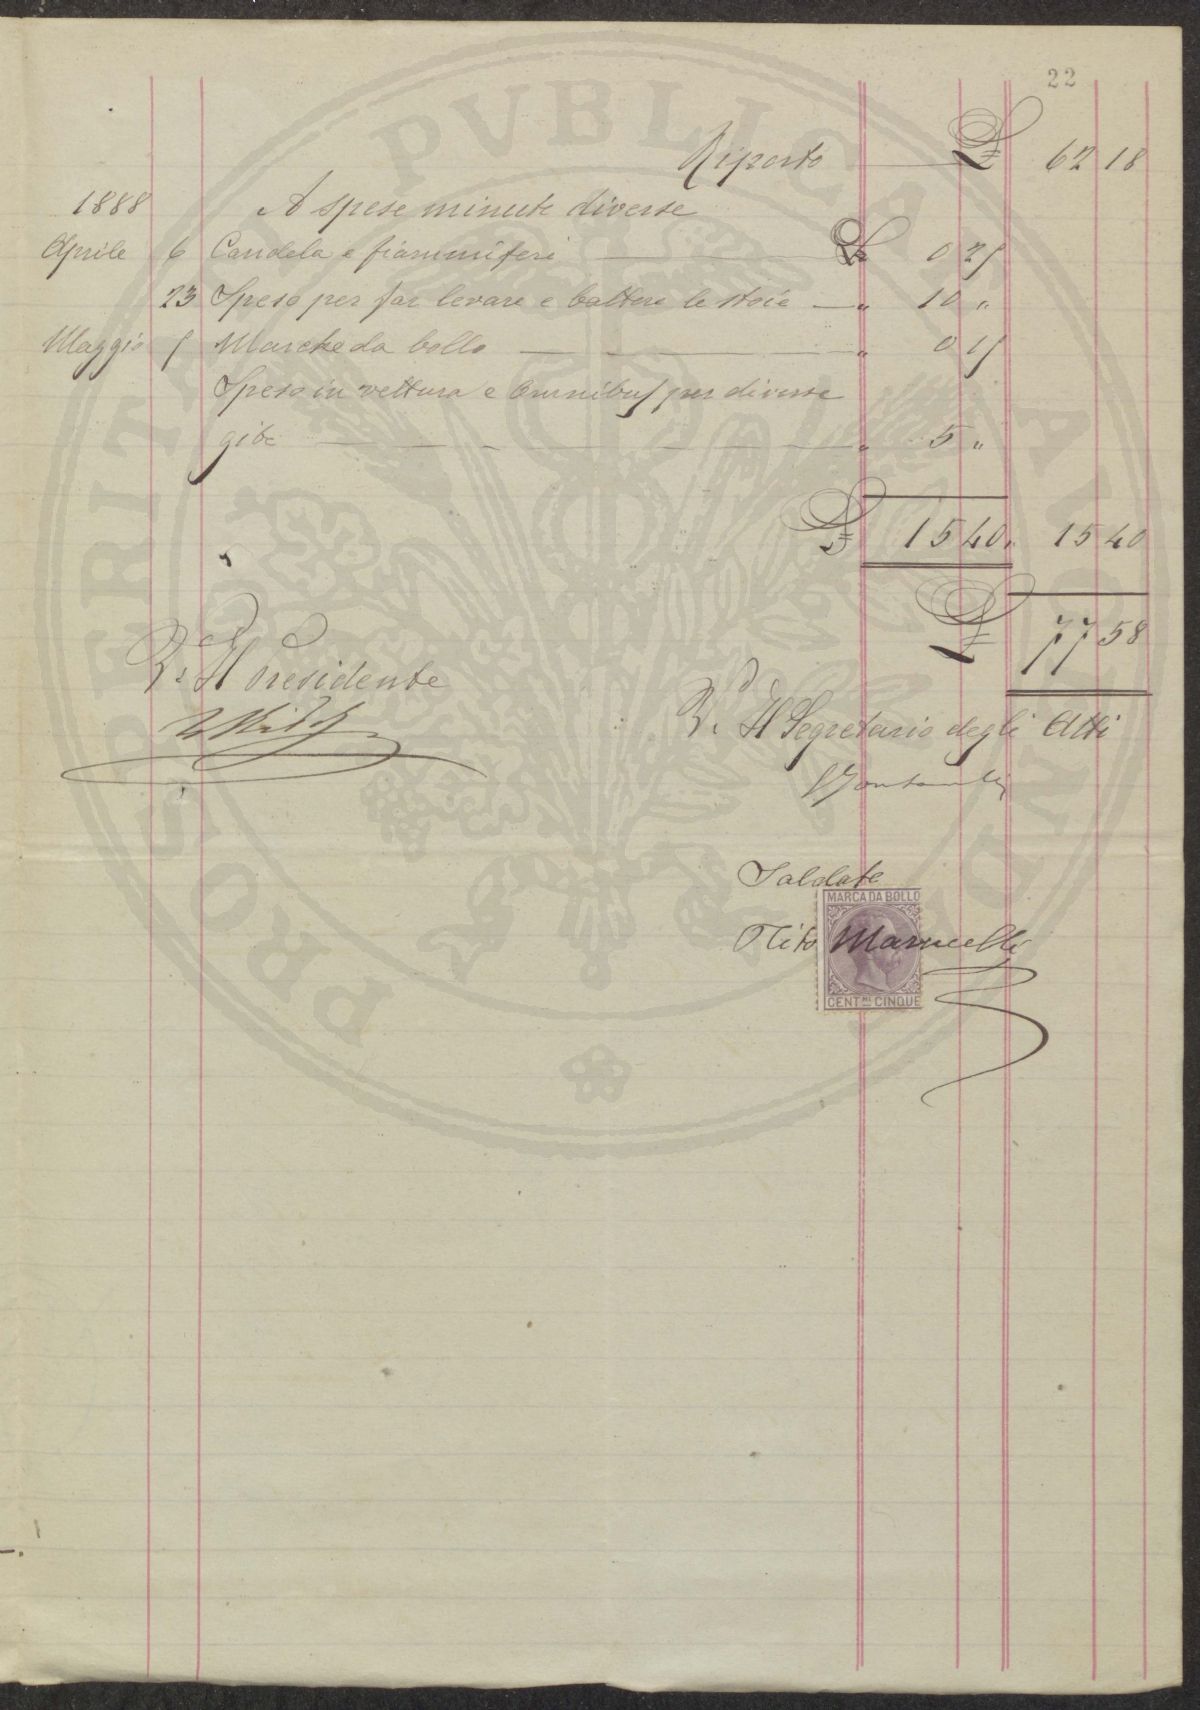 22
Riporto £ 62 18
1888 A spese minute diverse
Aprile 6 Candela e fiammiferi £ 0 25
23 Spese per far levare e battere le stoie " 10 "
Maggio 5 Marche da bollo " 0 15
Spese in vettura e Omnibus per diverse
gite " 5 "
£ 15 40 15 40
£ 77 58
V. Il Presidente
V. Il Segretario degli Atti
Saldato
MARCA DA BOLLO
Tito Marucelli
CENT.MI CINQUE
PROSPERITATI PVBLICAE AVGENDAE